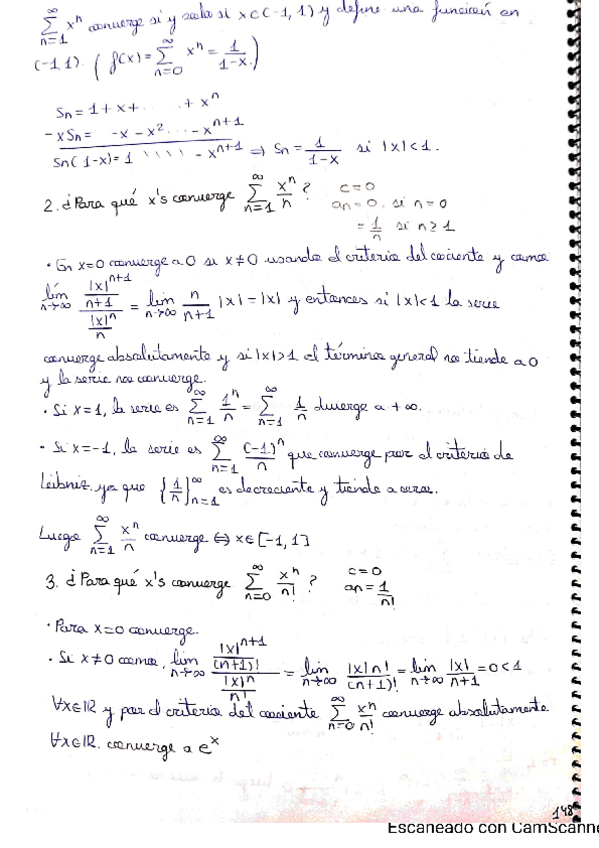 ∞∑n=1 xⁿ converge si y solo si x∈(-1, 1) y define una función en
(-1,1). ( f(x)= ∞∑n=0 xⁿ = 1/(1-x) )
Sn = 1+x+ . . . . . + xⁿ
-xSn = -x - x² . . . - xⁿ⁺¹
Sn(1-x)= 1 \ \ \ \ - xⁿ⁺¹ ⇒ Sn = 1/(1-x) si |x|<1.
2. ¿Para qué x's converge ∞∑n=1 xⁿ/n ? c=0
an=0. si n=0
= 1/n si n≥1
· En x=0 converge a 0 si x≠0 usando el criterio del cociente y como
lím n→∞ (|x|ⁿ⁺¹/(n+1))/(|x|ⁿ/n) = lím n→∞ n/(n+1) |x| = |x| y entonces si |x|<1 la serie
converge absolutamente y si |x|>1 el término general no tiende a 0
y la serie no converge.
· Si x=1, la serie es ∞∑n=1 1ⁿ/n = ∞∑n=1 1/n diverge a +∞.
· Si x=-1, la serie es ∞∑n=1 (-1)ⁿ/n que converge por el criterio de
Leibniz. ya que {1/n}∞n=1 es decreciente y tiende a cero.
Luego ∞∑n=1 xⁿ/n converge ⇔ x∈[-1, 1]
3. ¿Para qué x's converge ∞∑n=0 xⁿ/n! ? c=0
an = 1/n!
· Para x=0 converge.
· Si x≠0 como, lím n→∞ (|x|ⁿ⁺¹/(n+1)!)/(|x|ⁿ/n!) = lím n→∞ |x|n!/(n+1)! = lím n→∞ |x|/(n+1) = 0<1
∀x∈ℝ y por el criterio del cociente ∞∑n=0 xⁿ/n! converge absolutamente
∀x∈ℝ. converge a eˣ
148
Escaneado con CamScanne